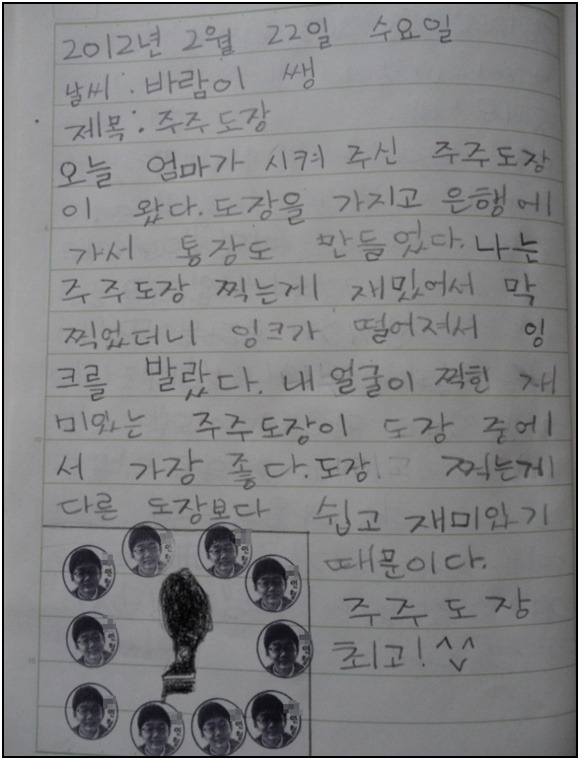 2012년 2월 22일 수요일
날씨 : 바람이 쌩
제목 : 주주도장
오늘 엄마가 시켜 주신 주주도장
이 왔다. 도장을 가지고 은행에
가서 통장도 만들었다. 나는
주주도장 찍는게 재밌어서 막
찍었더니 잉크가 떨어져서 잉
크를 발랐다. 내 얼굴이 찍힌 재
미와는 주주도장이 도장 중에
서 가장 좋다. 도장 찍는게
다른 도장보다 쉽고 재미와기
때문이다.
주주도장
최고! ^^